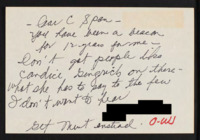 Dear C Span -
You have been a beacon
for 12-years for me -
Don't get people like
Candice Gingrich on there -
what she has to pay to the few
I don't want to hear
Get Newt instead. O-Will